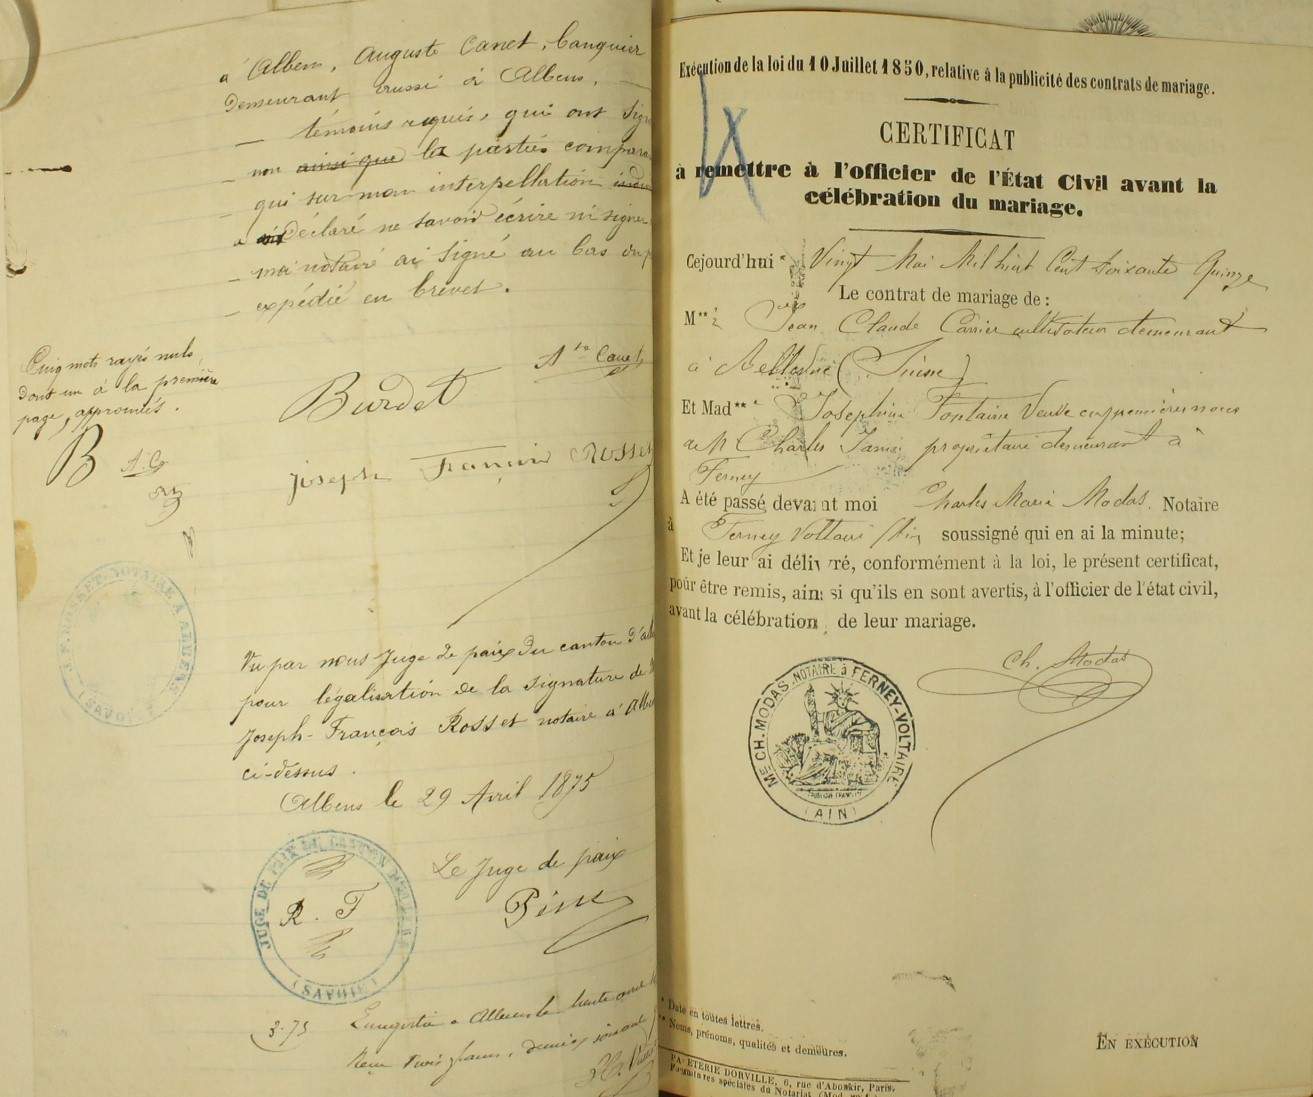 à Albens, Auguste Canet, banquier
demeurant aussi à Albens.
témoins requis, qui ont sign
non ainsi que les parties compara
qui sur mon interpellation
a déclaré ne savoir écrire ni signer
moi notaire ai signé au bas du p
expédié en brevet.
Cinq mots rayés nuls
dont un à la première
page, approuvés.
B
A. C.
Ate Canet
Burdet
Joseph François Rosset
J. F. ROSSET, NOTAIRE À ALBENS
(SAVOIE)
Vu par nous Juge de paix du canton d'alb
pour légalisation de la signature de M
Joseph-François Rosset notaire à Alb
ci-dessus.
Albens le 29 Avril 1875
Le Juge de paix
JUGE DE PAIX DU CANTON D'ALBENS
R. F
(SAVOIE)
3-75
Enregistré à Albens le trente avril
Reçu trois francs, décimes soixante
Exécution de la loi du 10 Juillet 1850, relative à la publicité des contrats de mariage.
CERTIFICAT
à remettre à l'officier de l'État Civil avant la
célébration du mariage.
Cejourd'hui * Vingt Mai Mil huit Cent Soixante Quinze
Le contrat de mariage de :
M** Jean Claude Carrier cultivateur demeurant
à Bellevue (Suisse)
Et Mad** Joséphine Fontaine Veuve en premières noces
de M Charles Janin propriétaire demeurant à
Ferney
A été passé devant moi Charles Marie Modas. Notaire
à Ferney Voltaire (Ain) soussigné qui en ai la minute;
Et je leur ai délivré, conformément à la loi, le présent certificat,
pour être remis, ainsi qu'ils en sont avertis, à l'officier de l'état civil,
avant la célébration de leur mariage.
Ch. Modas
Me CH. MODAS, NOTAIRE à FERNEY-VOLTAIRE
(AIN)
* Date en toutes lettres.
** Noms, prénoms, qualités et demeures.
EN EXÉCUTION
PAPETERIE DORVILLE, 6, rue d'Aboukir, Paris.
Fournitures spéciales du Notariat.